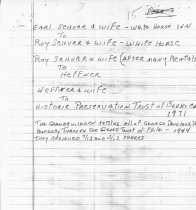 15
EARL SCHURR & WIFE - WHITE HORSE INN
TO
ROY SCHURR & WIFE - WHITE HORSE
ROY SCHURR & WIFE (AFTER MANY RENTALS
TO
HEFFNER
HEFFNER & WIFE
TO
HISTORIC PRESERVATION TRUST OF BERKS CO
1971
THE GRANDCHILDREN SETTLED ALL OF GEORGE DOUGLASS
PROPERTY THROUGH THE GIRARD TRUST OF PHILA - 1944
THEY RECEIVED 1/12 AND 5/12 SHARES